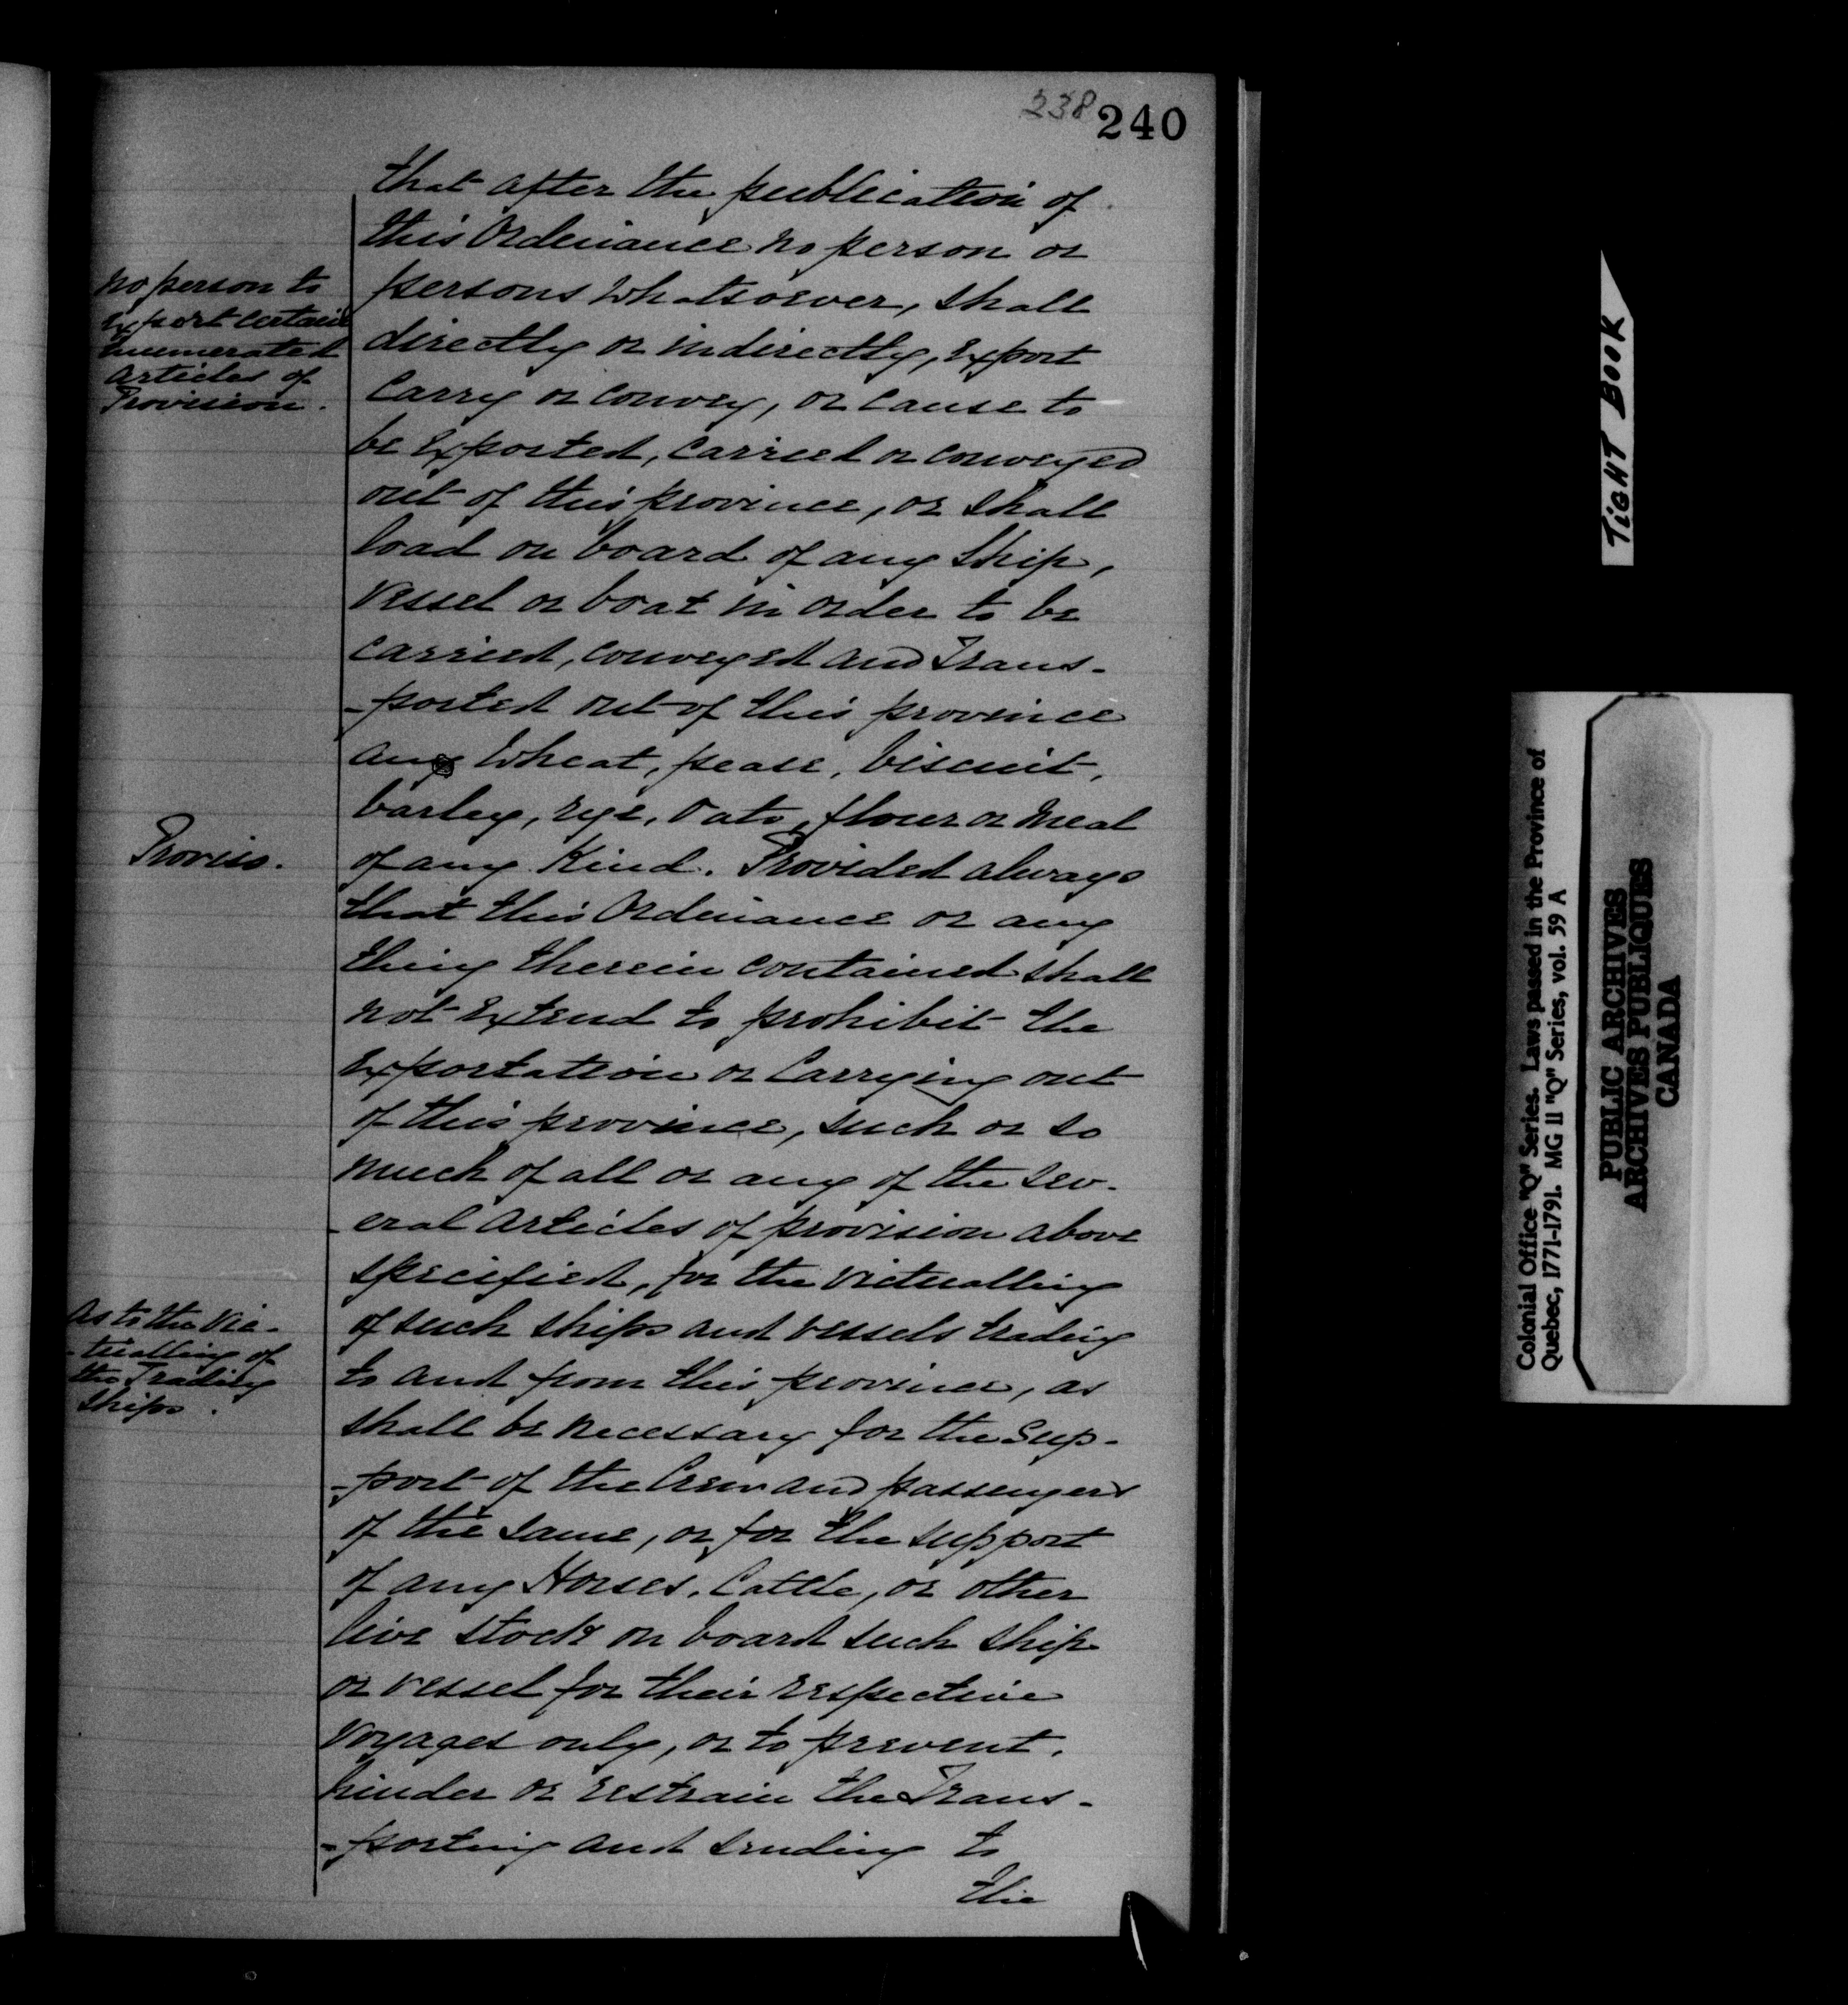 238 240
that after the publication of
this Ordinance no person or
persons whatsoever, shall
directly or indirectly, Export
Carry or convey, or cause to
be Exported, carried or conveyed
out of this province, or shall
load on board of any Ship,
Vessel or boat in order to be
carried, conveyed and Trans-
-ported out of this province
any Wheat, pease, biscuit,
barley, rye, oats, flour or meal
of any Kind. Provided always
that this Ordinance or any
thing therein contained shall
not Extend to prohibit the
Exportation or Carrying out
of this province, such or so
much of all or any of the sev-
-eral articles of provision above
specified, for the victualling
of such ships and vessels trading
to and from this province, as
shall be necessary for the Sup-
-port of the Crew and passengers
of the same, or for the support
of any Horses, Cattle, or other
live stock on board such ship
or vessel for their respective
voyages only, or to prevent,
hinder or restrain the Trans-
-porting and sending to
the
No person to
Export certain
Enumerated
articles of
Provision.
Proviso.
As to the Vic-
-tualling of
the Trading
Ships.
TIGHT BOOK
Colonial Office "Q" Series. Laws passed in the Province of
Quebec, 1771-1791. MG 11 "Q" Series, vol. 59 A
PUBLIC ARCHIVES
ARCHIVES PUBLIQUES
CANADA